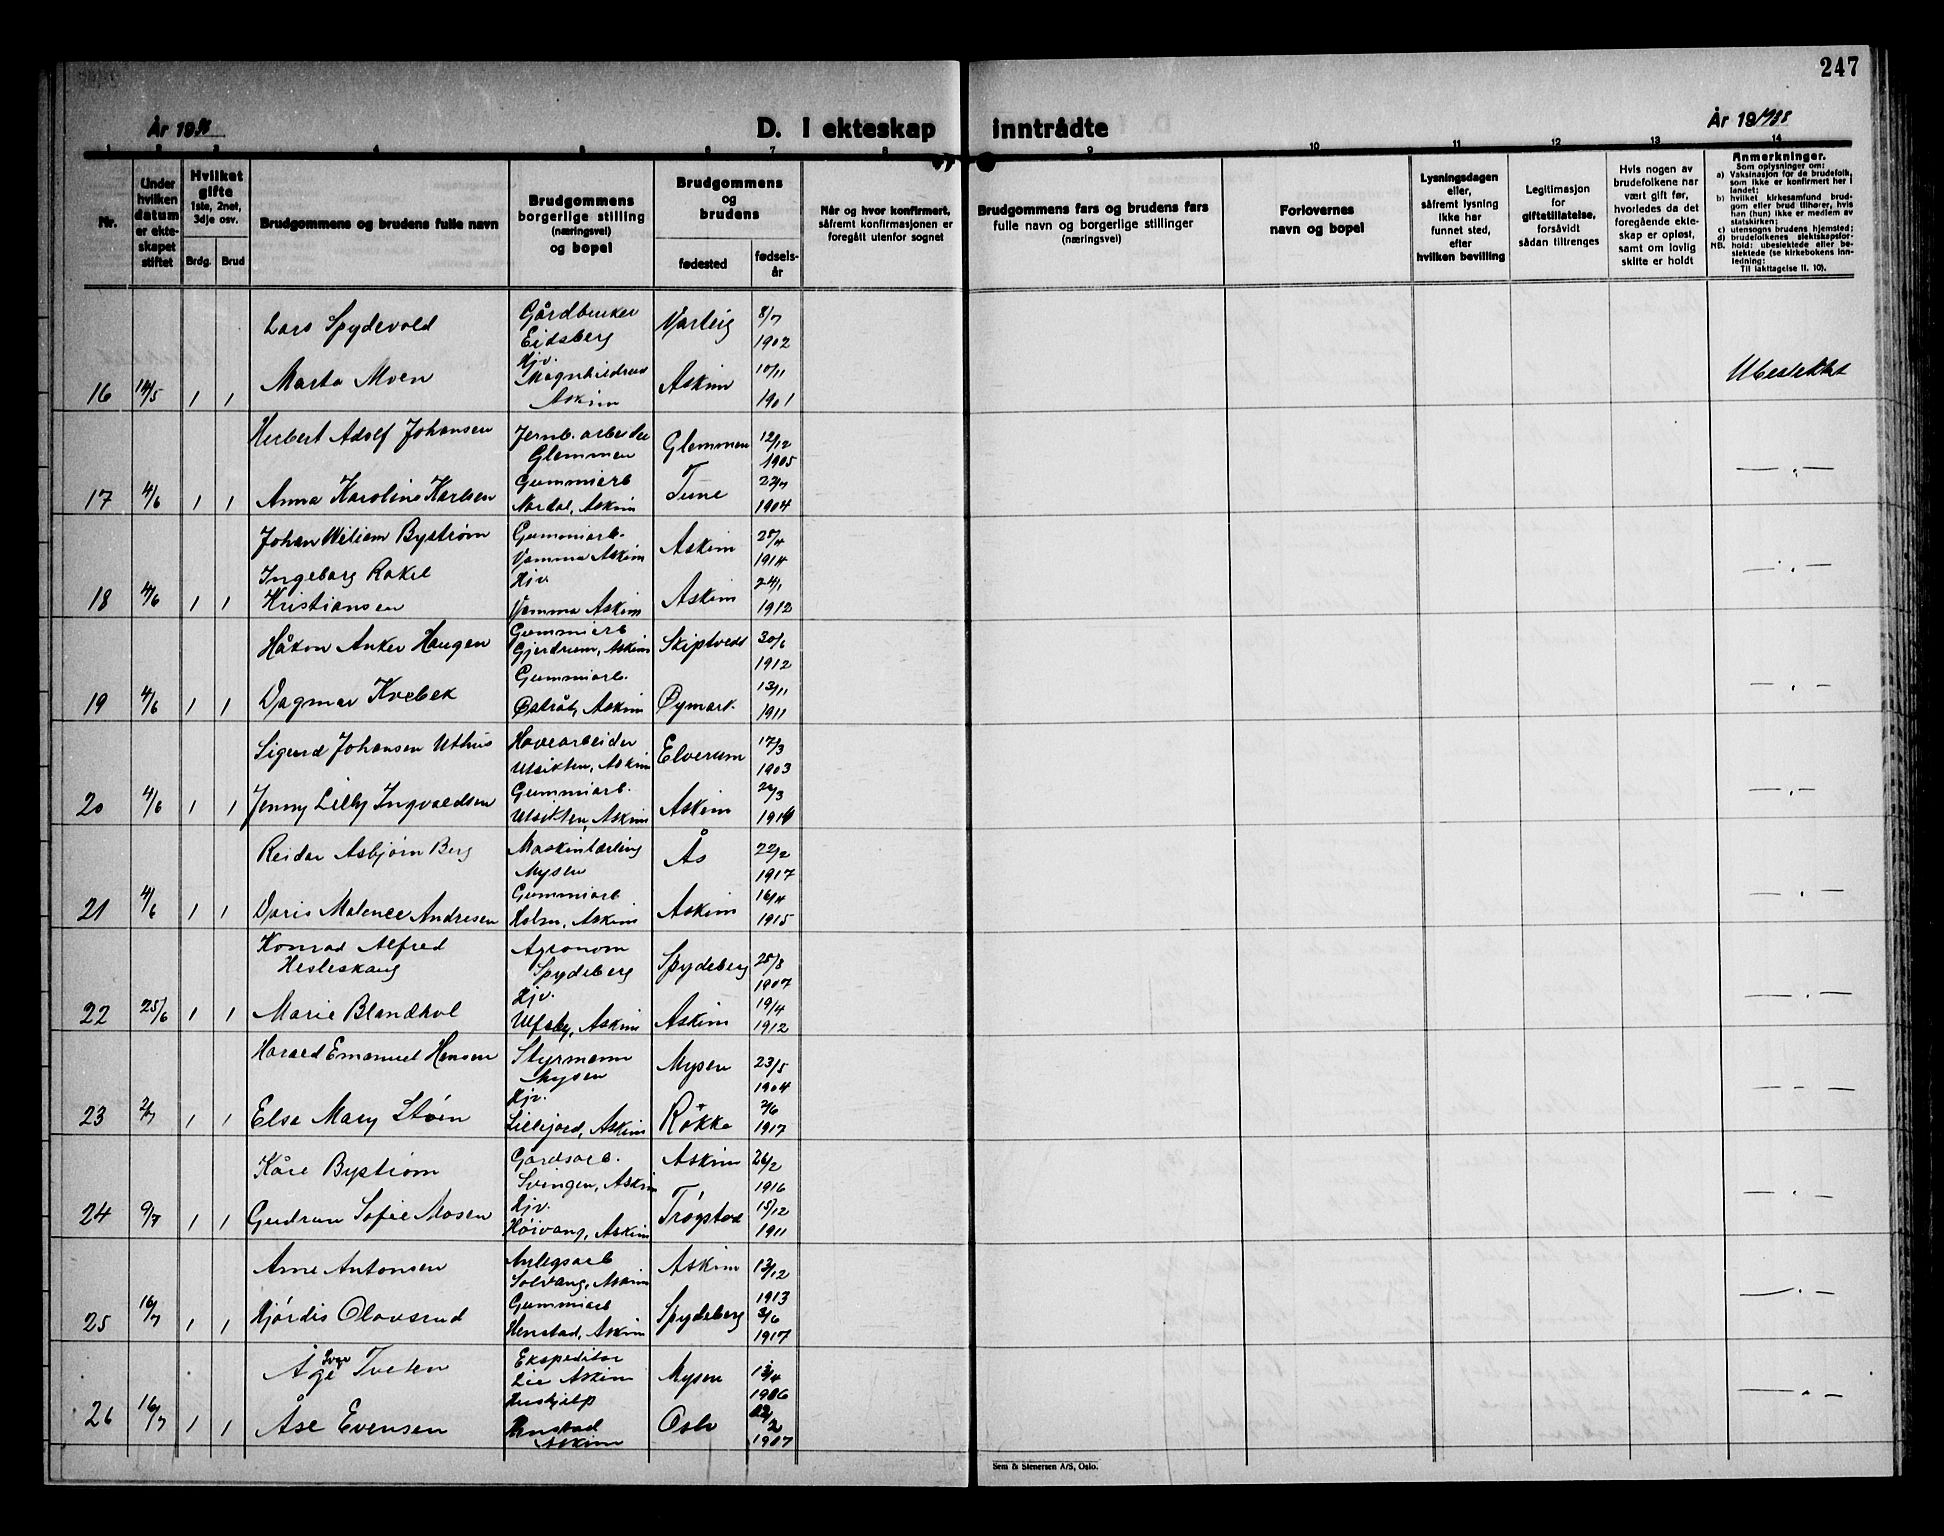 247
År 1938
D. I ekteskap inntrådte
År 19 1938
1 2 3 4 5 6 7 8 9 10 11 12 13 14
Nr.
Under hvilken datum er ekteskapet stiftet
Hvilket gifte
1ste, 2net, 3dje osv.
Brdg. Brud
Brudgommens og brudens fulle navn
Brudgommens borgerlige stilling (næringsvei) og bopel
Brudgommens og brudens
fødested
fødselsår
Når og hvor konfirmert, såfremt konfirmasjonen er foregått utenfor sognet
Brudgommens fars og brudens fars fulle navn og borgerlige stillinger (næringsvei)
Forlovernes navn og bopel
Lysningsdagen eller, såfremt lysning ikke har funnet sted, efter hvilken bevilling
Legitimasjon for giftetillatelse, forsåvidt sådan tiltrenges
Hvis nogen av brudefolkene har vært gift før, hvorledes da det foregående ekteskap er opløst, samt om lovlig skifte er holdt
Anmerkninger.
Som oplysninger om:
a) Vaksinasjon for de brudefolk, som ikke er konfirmert her i landet;
b) hvilket kirkesamfund brudgom eller brud tilhører, hvis han (hun) ikke er medlem av statskirken;
c) utensogns brudens hjemsted;
d) brudefolkenes slektskapsforhold: ubeslektede eller beslektede (se kirkebokens innledning:
NB. Til iakttagelse II. 10).
Lars Spydevold Gårdbruker Eidsberg Varteig 8/7 1902
16 14/5 1 1 Marta Moen Hjv. Magnhildrud Askim Askim 10/11 1901 Ubeslektet
Herbert Adolf Johansen Jernb. arbeider Glemmen Glemmen 12/12 1905
17 4/6 1 1 Anna Karoline Karlsen Gummiarb Nordal, Askim Tune 22/7 1904 — . —
Johan Wiliam Bystrøm Gummiarb. Vamma Askim Askim 25/4 1914
18 4/6 1 1 Ingeborg Rakel Kristiansen Hjv Vamma Askim Askim 24/1 1912 — . —
Håkon Anker Haugen Gummiarb Gjerdrum, Askim Skiptvedt 30/6 1912
19 4/6 1 1 Dagmar Kvebek Gummiarb. Østråt, Askim Øymark 13/11 1911 — . —
Sigurd Johansen Uthus Havearbeider Utsikten, Askim Elverum 17/3 1903
20 4/6 1 1 Jenny Lilly Ingvaldsen Gummiarb. Utsikten, Askim Askim 1914 — . —
Reidar Asbjørn Berg Maskinlærling Mysen Ås 22/2 1917
21 4/6 1 1 Doris Malence Andresen Gummiarb Holsn, Askim Askim 16/4 1915 — . —
Konrad Alfred Hesleskaug Agronom Spydeberg Spydeberg 25/8 1907
22 25/6 1 1 Marie Blandkol Hjv. Ulfsby, Askim Askim 19/4 1912 — . —
Harald Emanuel Hansen Styrmann Mysen Mysen 23/5 1904
23 2/7 1 1 Else Mary Støen Hjv. Lillejord, Askim Røkke 2/6 1917 — . —
Kåre Bystrøm Gårdsarb. Svingen, Askim Askim 26/2 1916
24 9/7 1 1 Gudrun Sofie Mosen Hjv. Høivang, Askim Trøgstad 15/12 1911 — . —
Arne Antonsen Anlegsarb Solvang, Askim Askim 13/12 1913
25 16/7 1 1 Hjørdis Olavsrud Gummiarb Henstad, Askim Spydeberg 3/6 1917 — . —
Åge Ivar Tveten Ekspeditør Lie Askim Mysen 13/4 1906
26 16/7 1 1 Åse Evensen Hushjelp Henstad Askim Oslo 22/2 1907 — . —
Sem & Stenersen A/S, Oslo.